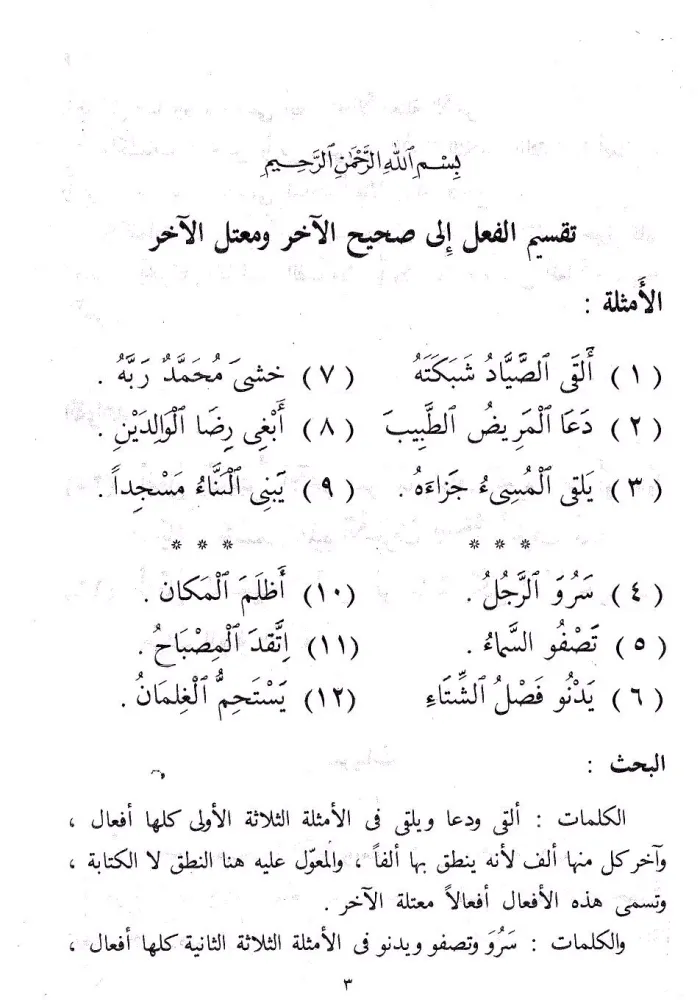 بِسْمِ ٱللهِ ٱلرَّحْمٰنِ ٱلرَّحِيمِ
تقسيم الفعل إلى صحيح الآخر ومعتل الآخر
الأَمثلة :
( ١ ) أَلْقَى ٱلصَّيَّادُ شَبَكَتَهُ ( ٧ ) خشىَ مُحَمَّدٌ رَبَّهُ .
( ٢ ) دَعَا ٱلْمَرِيضُ ٱلطَّبِيبَ ( ٨ ) أَبْغِى رِضَا ٱلْوَالِدَيْنِ .
( ٣ ) يَلقى ٱلْمُسِىءُ جَزَاءَهُ . ( ٩ ) يَبنِى ٱلْبَنَّاءُ مَسْجِداً .
* * * * * *
( ٤ ) سَرُوَ ٱلرَّجُلُ . (١٠) أَظلَمَ ٱلْمَكان .
( ٥ ) تَصْفُو السَّمَاءُ . (١١) اِتَّقدَ ٱلْمِصْبَاحُ .
( ٦ ) يَدْنُو فَصْلُ ٱلشِّتَاءِ (١٢) يَسْتَحِمُّ ٱلْغِلمَانُ .
البحث :
الكلمات : ألقى ودعا ويلقى فى الأمثلة الثلاثة الأولى كلها أفعال ،
وآخر كل منها ألف لأنه ينطق بها ألفاً ، والمعوّل عليه هنا النطق لا الكتابة ،
وتسمى هذه الأفعال أفعالاً معتلة الآخر .
والكلمات : سَرُوَ وتصفو ويدنو فى الأمثلة الثلاثة الثانية كلها أفعال ،
٣